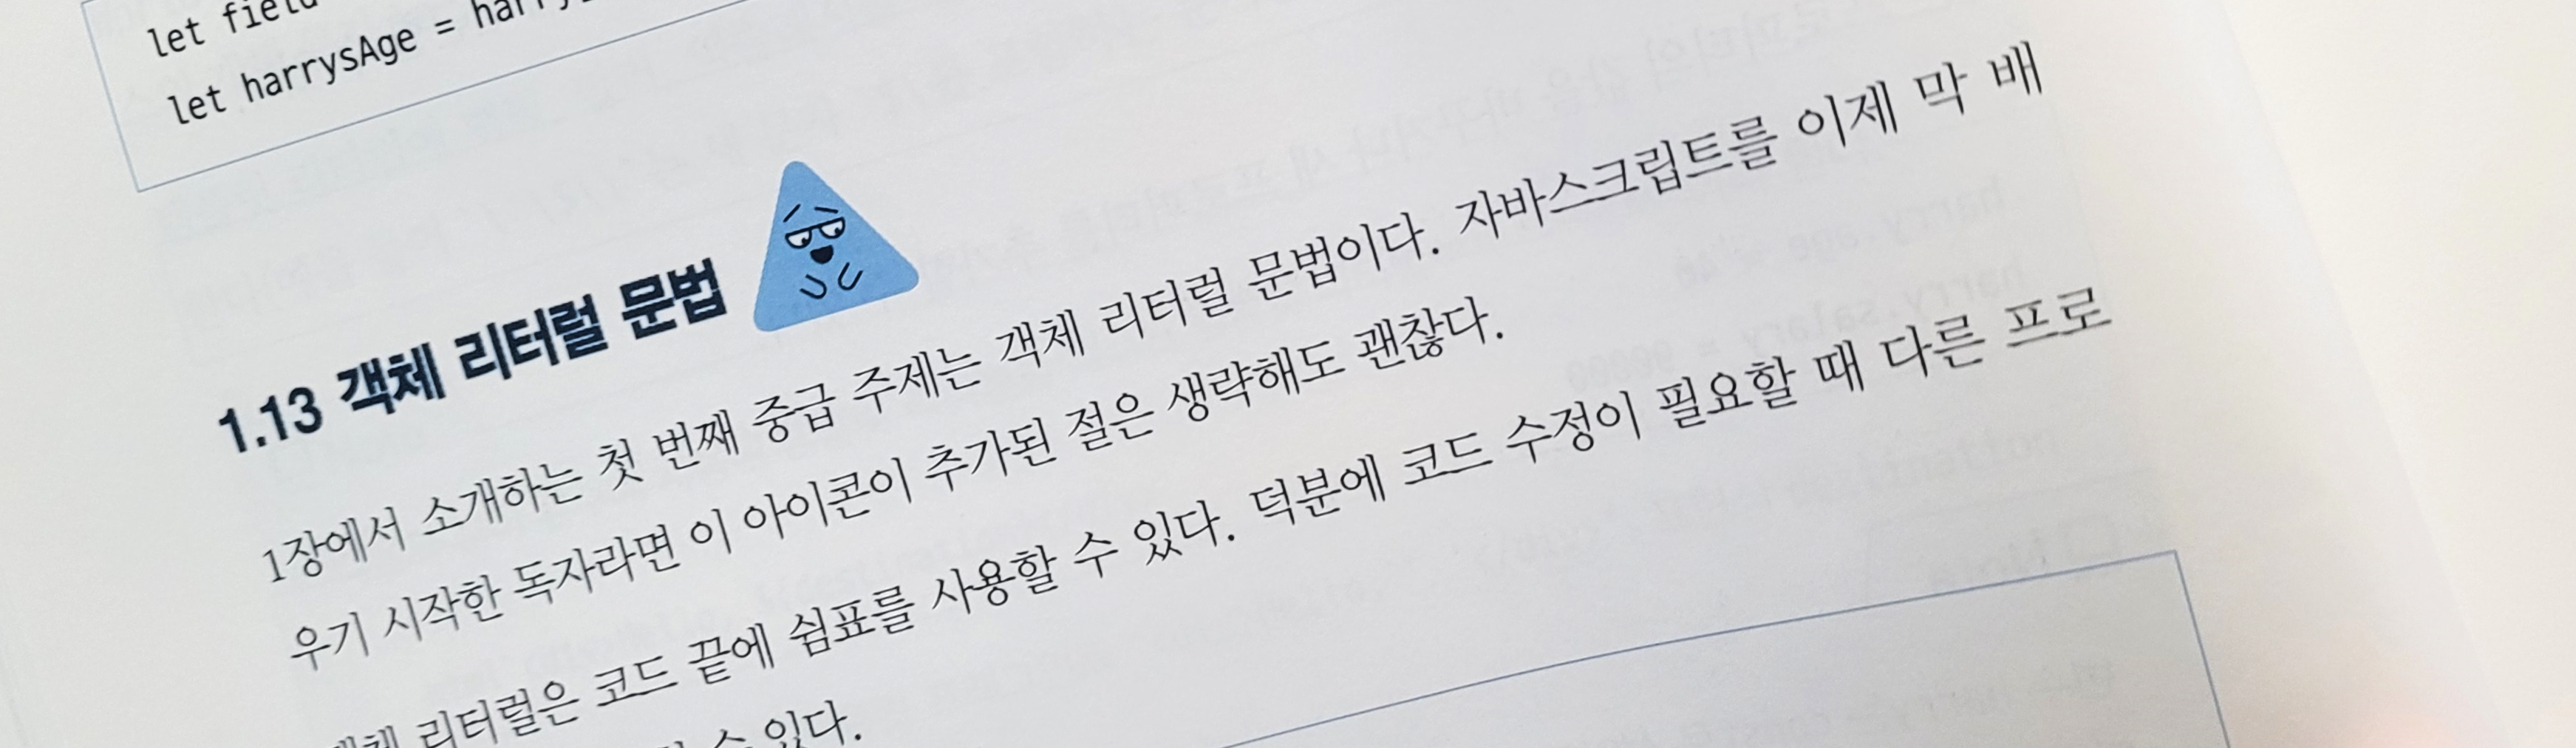 let field
let harrysAge =
1.13 객체 리터럴 문법
1장에서 소개하는 첫 번째 중급 주제는 객체 리터럴 문법이다. 자바스크립트를 이제 막 배
우기 시작한 독자라면 이 아이콘이 추가된 절은 생략해도 괜찮다.
리터럴은 코드 끝에 쉼표를 사용할 수 있다. 덕분에 코드 수정이 필요할 때 다른 프로
수 있다.